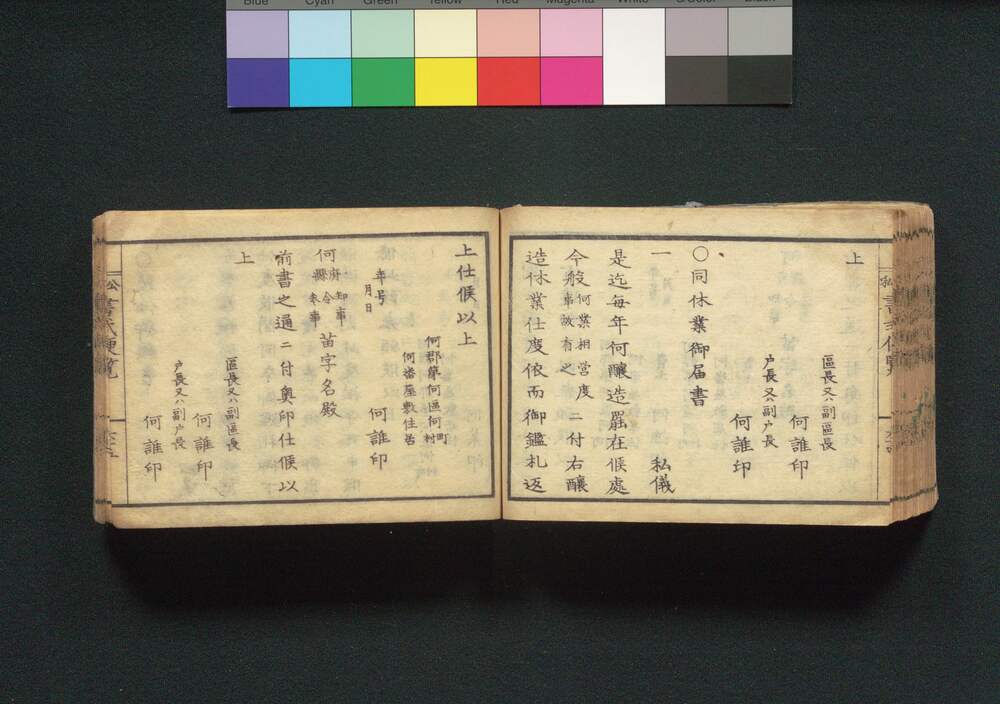 Blue Cyan Green Yellow Red Magenta White 3/Color Black
上
區長又ハ副區長
何誰印
戸長又ハ副戸長
何誰印
〇同休業御届書
一 私儀
是迄毎年何釀造罷在候處
今般何業相営度事故有之ニ付右釀
造休業仕度依而御鑑札返
上仕候以上
何郡第何區何町村
何番屋敷住居
年号月日 何誰印
何府縣知事令参事 苗字名殿
前書之通ニ付奥印仕候以
上
區長又ハ副區長
何誰印
戸長又ハ副戸長
何誰印